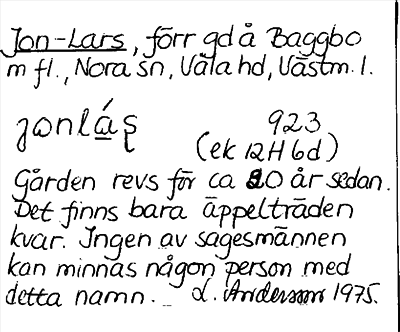 Jon-Lars, förr gd å Baggbo
m fl., Nora sn, Våla hd, Västm. l.
jonlás̨ 923
(ek 12H 6d)
Gården revs för ca 20 år sedan.
Det finns bara äppelträden
kvar. Ingen av sagesmännen
kan minnas någon person med
detta namn. _ L. Anderson 1975.